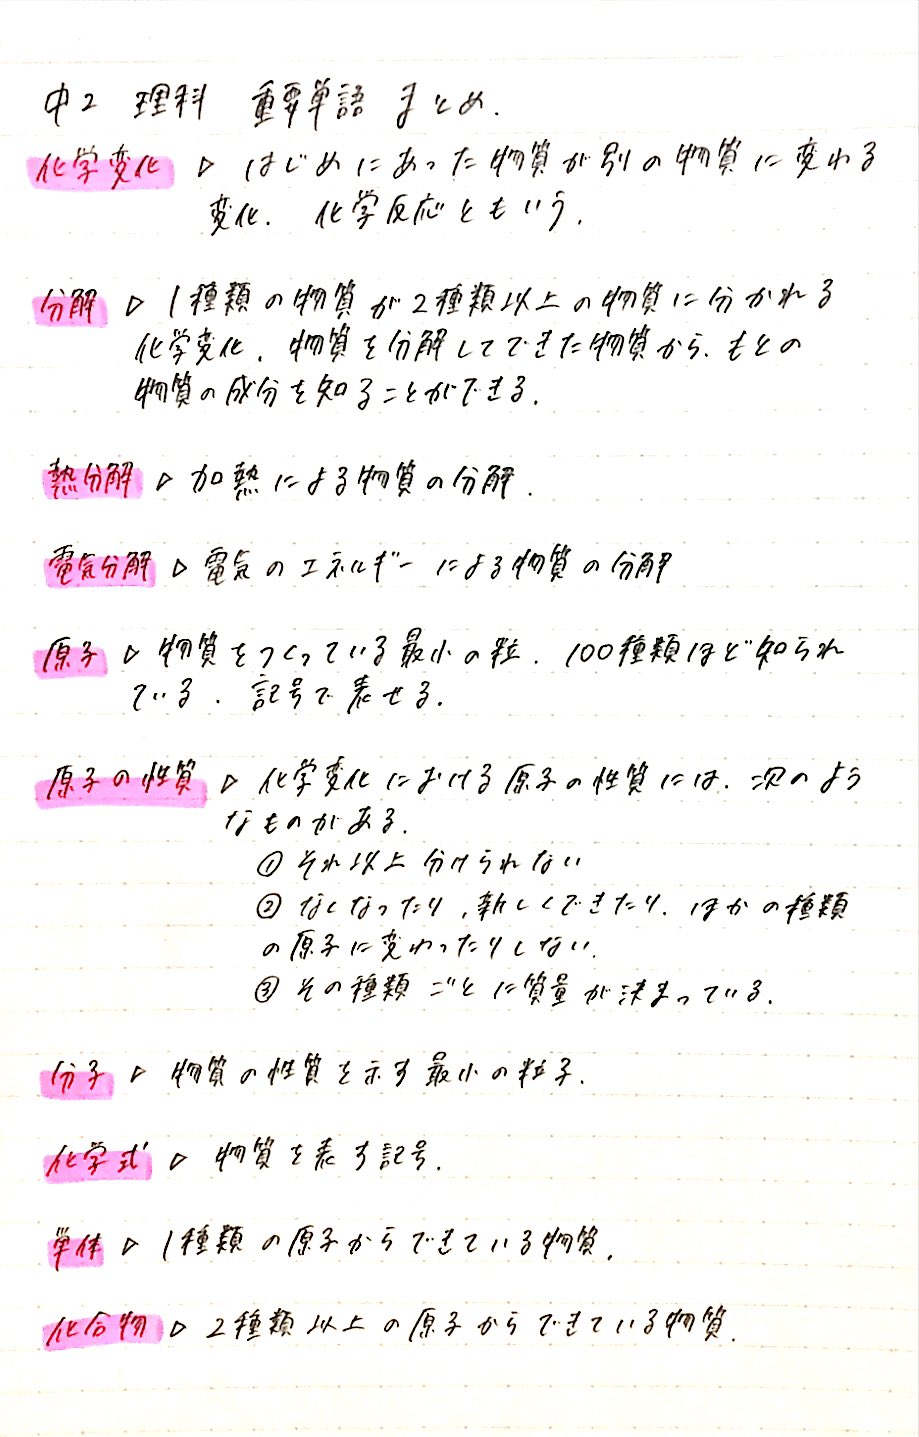 中2 理科 重要単語 まとめ.
化学変化 ▷ はじめにあった物質が別の物質に変わる
変化. 化学反応ともいう.
分解 ▷ 1種類の物質が2種類以上の物質に分かれる
化学変化. 物質を分解してできた物質から、もとの
物質の成分を知ることができる.
熱分解 ▷ 加熱による物質の分解.
電気分解 ▷ 電気のエネルギーによる物質の分解
原子 ▷ 物質をつくっている最小の粒. 100種類ほど知られ
ている. 記号で表せる.
原子の性質 ▷ 化学変化における原子の性質には、次のよう
なものがある.
① それ以上分けられない
② なくなったり、新しくできたり、ほかの種類
の原子に変わったりしない.
③ その種類ごとに質量が決まっている.
分子 ▷ 物質の性質を示す最小の粒子.
化学式 ▷ 物質を表す記号.
単体 ▷ 1種類の原子からできている物質.
化合物 ▷ 2種類以上の原子からできている物質.